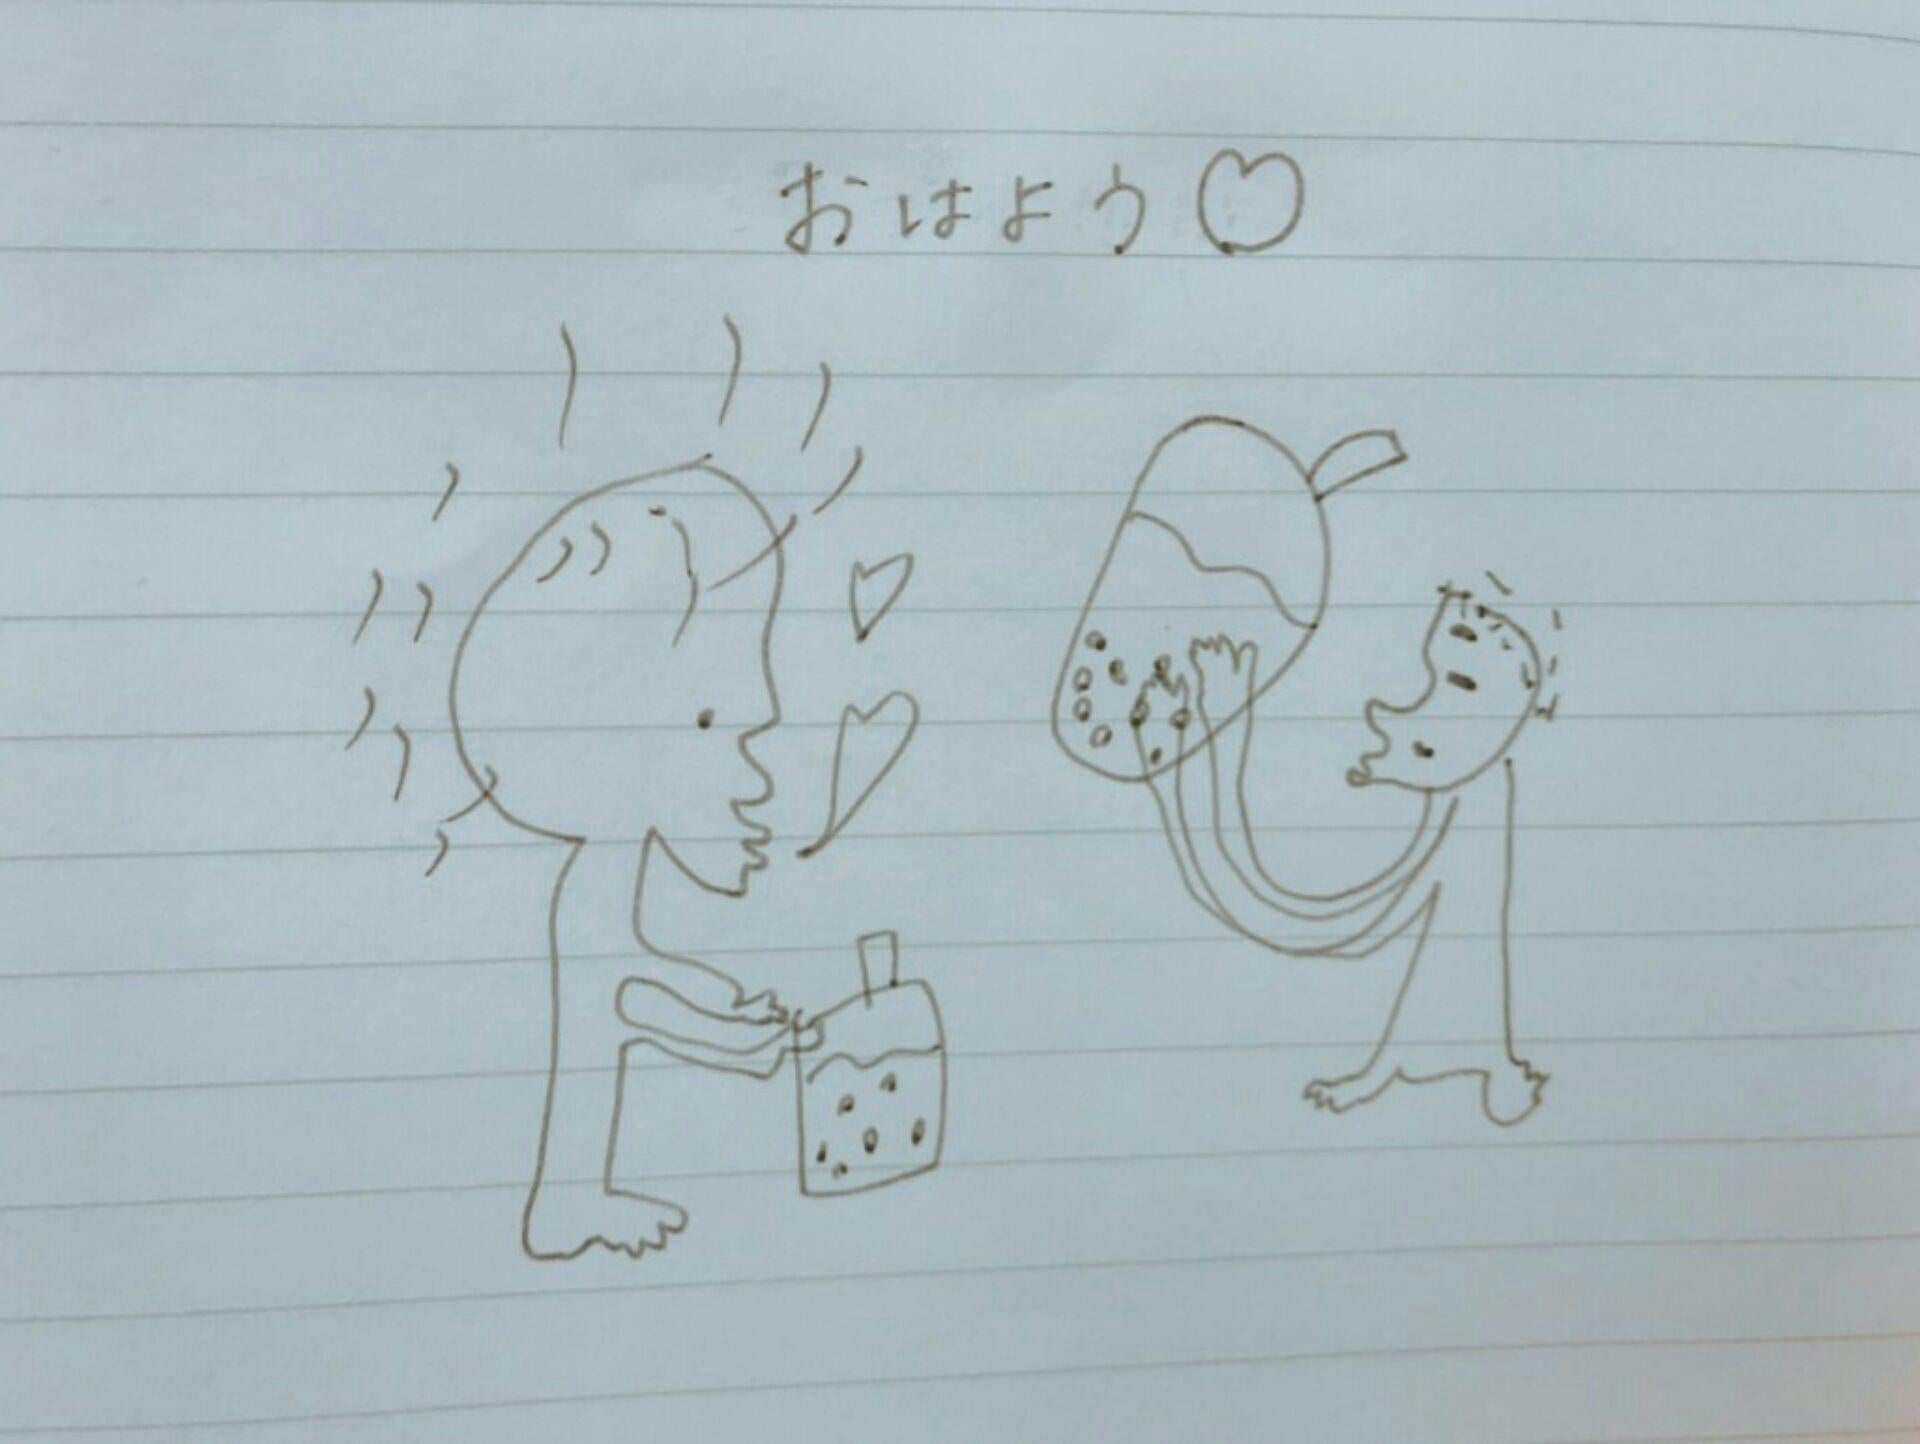 おはよう♡